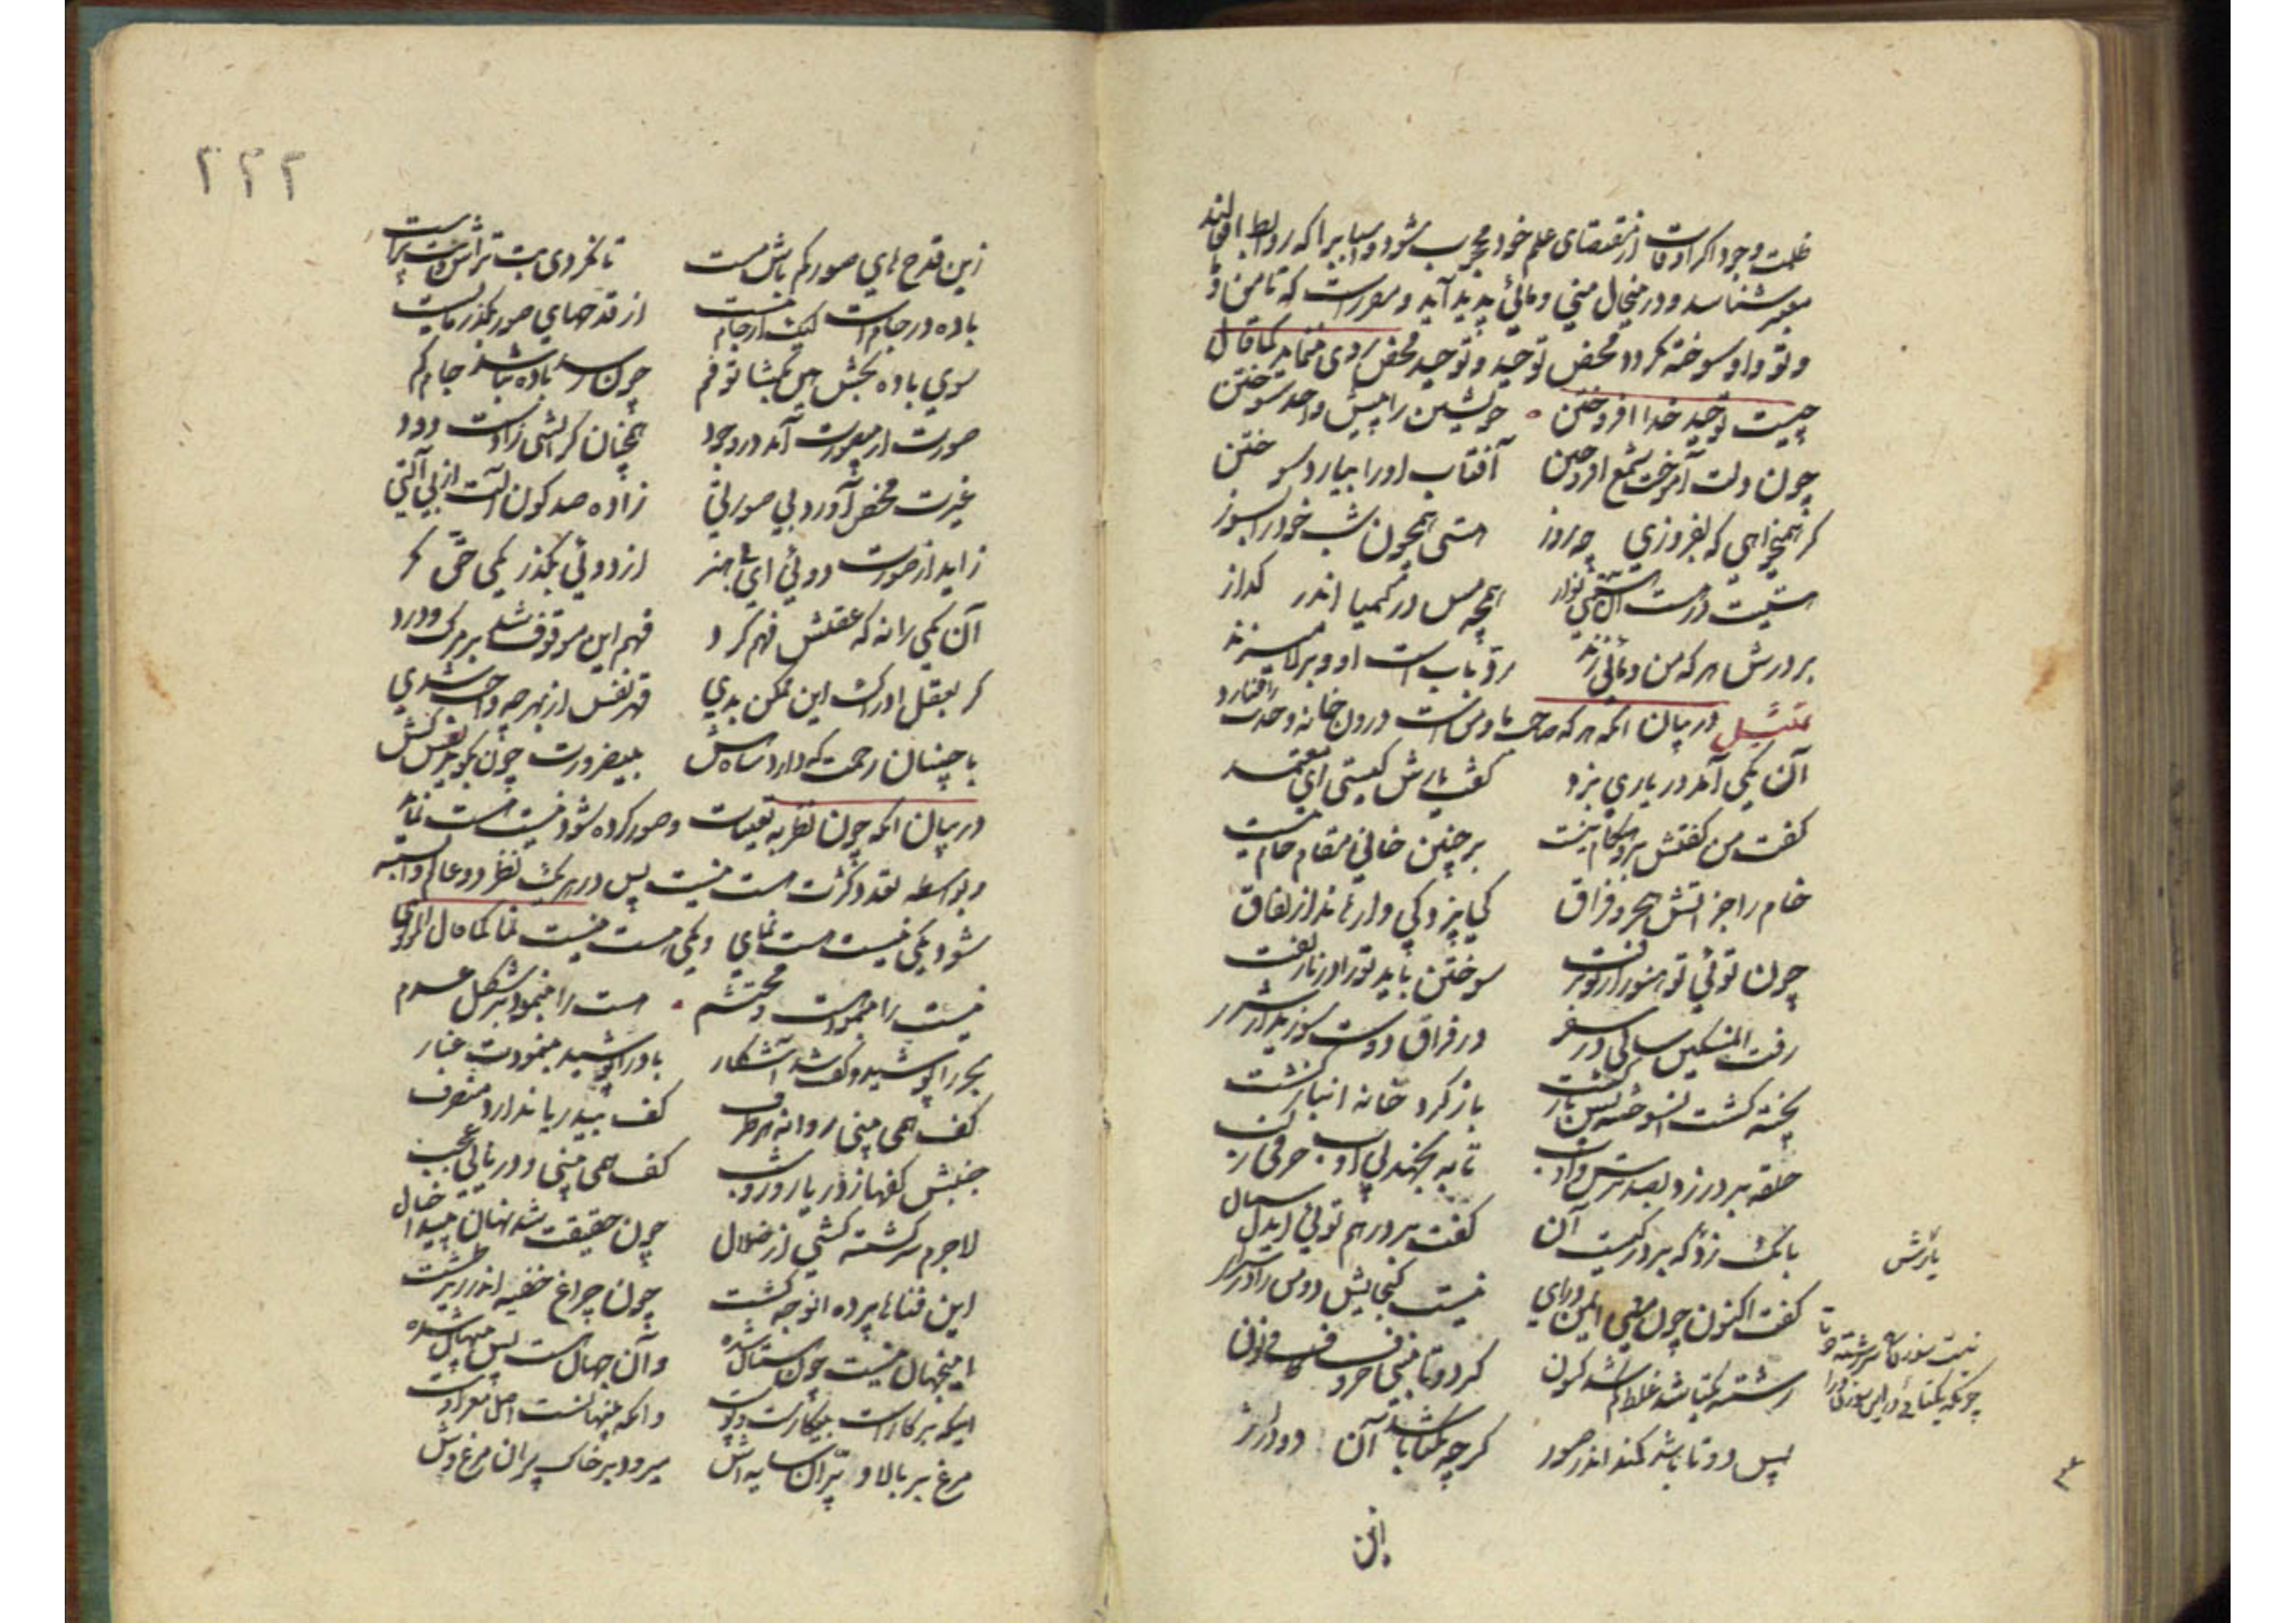 ظلمت وجود اکر اوقات از مقتضای علم خود محجوب شود و اسبابیرا که روابط افعالند
معتبر شناسد و در منحال منی و مائی پدید آید و مقرر است که تا من و
و تو و او سوخته نکردد محض توحید و توحید محض روی ننماید کما قال
چیست توحید خدا افروختن خویشتن را پیش واحد سوختن
چون دلت آموخت شمع افروختن آفتاب او را نیارد سوختن
کر همیخواهی که بفروزی چو روز هستی همچون شب خود را بسوز
هستیت در هست آن هستی نواز همچو مس در کیمیا اندر کداز
بر درش هر که من و ما میزند رد باب است او و بر لا میزند
تمثیل در بیان آنکه هر که صاحب ما و من است درون خانه وحدت راه ندارد
آن یکی آمد در یاری بزد کفت یارش کیستی ای معتمد
کفت من کفتش برو هنکام نیست بر چنین خوانی مقام خام نیست
خام را جز آتش هجر و فراق کی پزد کی وارهاند از نفاق
چون توئی تو هنوز از تو نرفت سوختن باید تو را در نار تفت
رفت آن مسکین سالی در سفر در فراق دوست سوزید از شرر
پخته کشت آن سوخته پس باز کشت باز کرد خانه انباز کشت
حلقه بر در زد بصد ترس و ادب تا به نجهد بی ادب حرفی ز لب
بانک زد که بر در کیست آن کفت بر در هم توئی ای دلستان
کفت اکنون چون منی ای من درآی نیست کنجایش دو من را در سرای
رشته یکتا شد غلط کم شد کنون کر دو تا بینی حروف کاف و نون
پس دو تا باشد کمند اندر صور کرچه یکتا باشد آن دو در اثر
یارش
نیست سوزن را سر رشته دو تا
چونکه یکتائی در این سوزن درآ
این
۲۲۲
زین قدح های صور کم باش مست تا نکردی بت تراش و بت پرست
باده در جام است لیک از جام نیست از قدحهای صور بکذر مایست
سوی باده بخش هین بکشا تو فم چون رسد باده نباشد جام کم
صورت از بیصورت آمد در وجود همچنان کز آتشی زادست دود
غیرت محض آورد بی صورتی زاده صد کون آلت از بی آلتی
زاید از صورت دوئی ای با هنر از دوئی بکذر یکی حق نکر
آن یکی را نه که عقلش فهم کرد فهم این موقوف شد بر مرک و درد
کر بعقل ادراک این ممکن بدی قهر نفس از بهر چه واجب شدی
با چنان رحمت که دارد شاه هش بیضرورت چون بکوید نفس کش
در بیان آنکه چون نظر به تعینات و صور کرده شود نیست هست نماید
و بواسطه تعدد کثرت هست نیست پس در هر یک نظر دو عالم وابسته
شود یکی نیست هست نمای و یکی هست نیست نما کما قال المولوی
نیست را بنمود هست و محتشم هست را بنمود بر شکل عدم
بحر را پوشید و کف شد آشکار باد را پوشید بنمودت غبار
کف همی بینی روانه هر طرف کف بیدریا ندارد منصرف
جنبش کفها ز دریا روز و شب کف همی بینی و دریا نی عجب
لاجرم سرکشته کشتی از ضلال چون حقیقت شد نهان پیدا خیال
این فناها پرده آن وجه کشت چون چراغ خفیه اندر زیر طشت
اینجهان نیست چون هستان شده و آن جهان هست بس پنهان شده
اینکه بر کار است بیکار است و پوست و آنکه پنهانست اصل مغز اوست
مرغ بر بالا و پران سایه اش میرود بر خاک پران مرغ وش